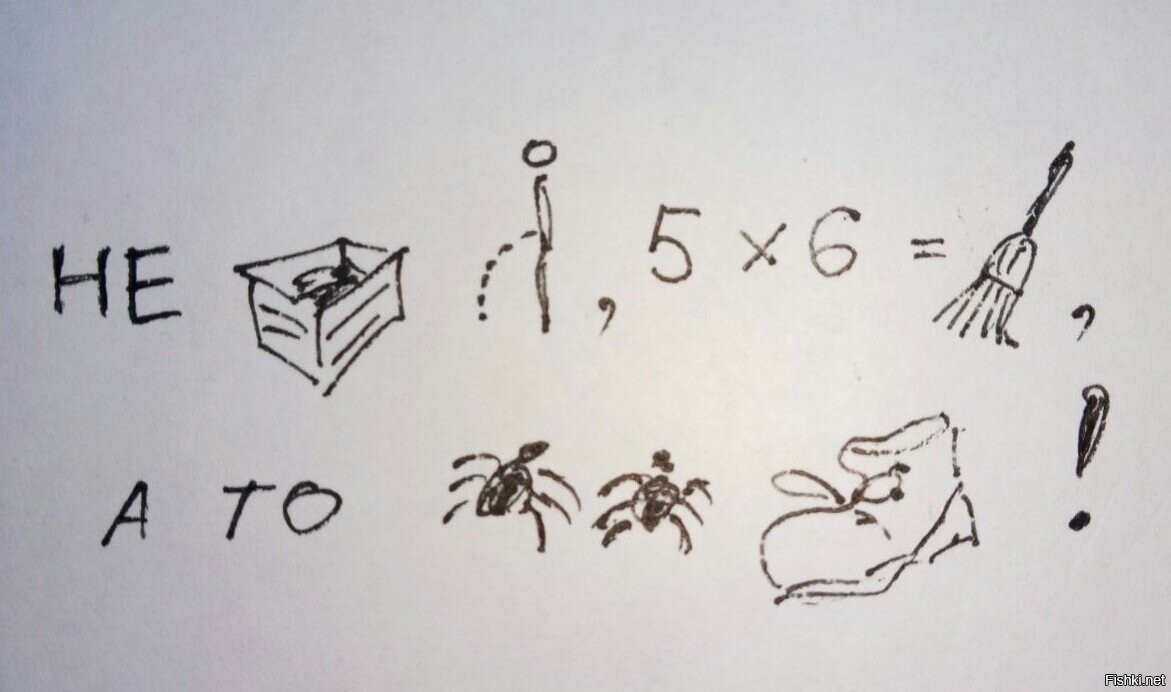 НЕ , 5 × 6 = ,
А ТО !
Fishki.net